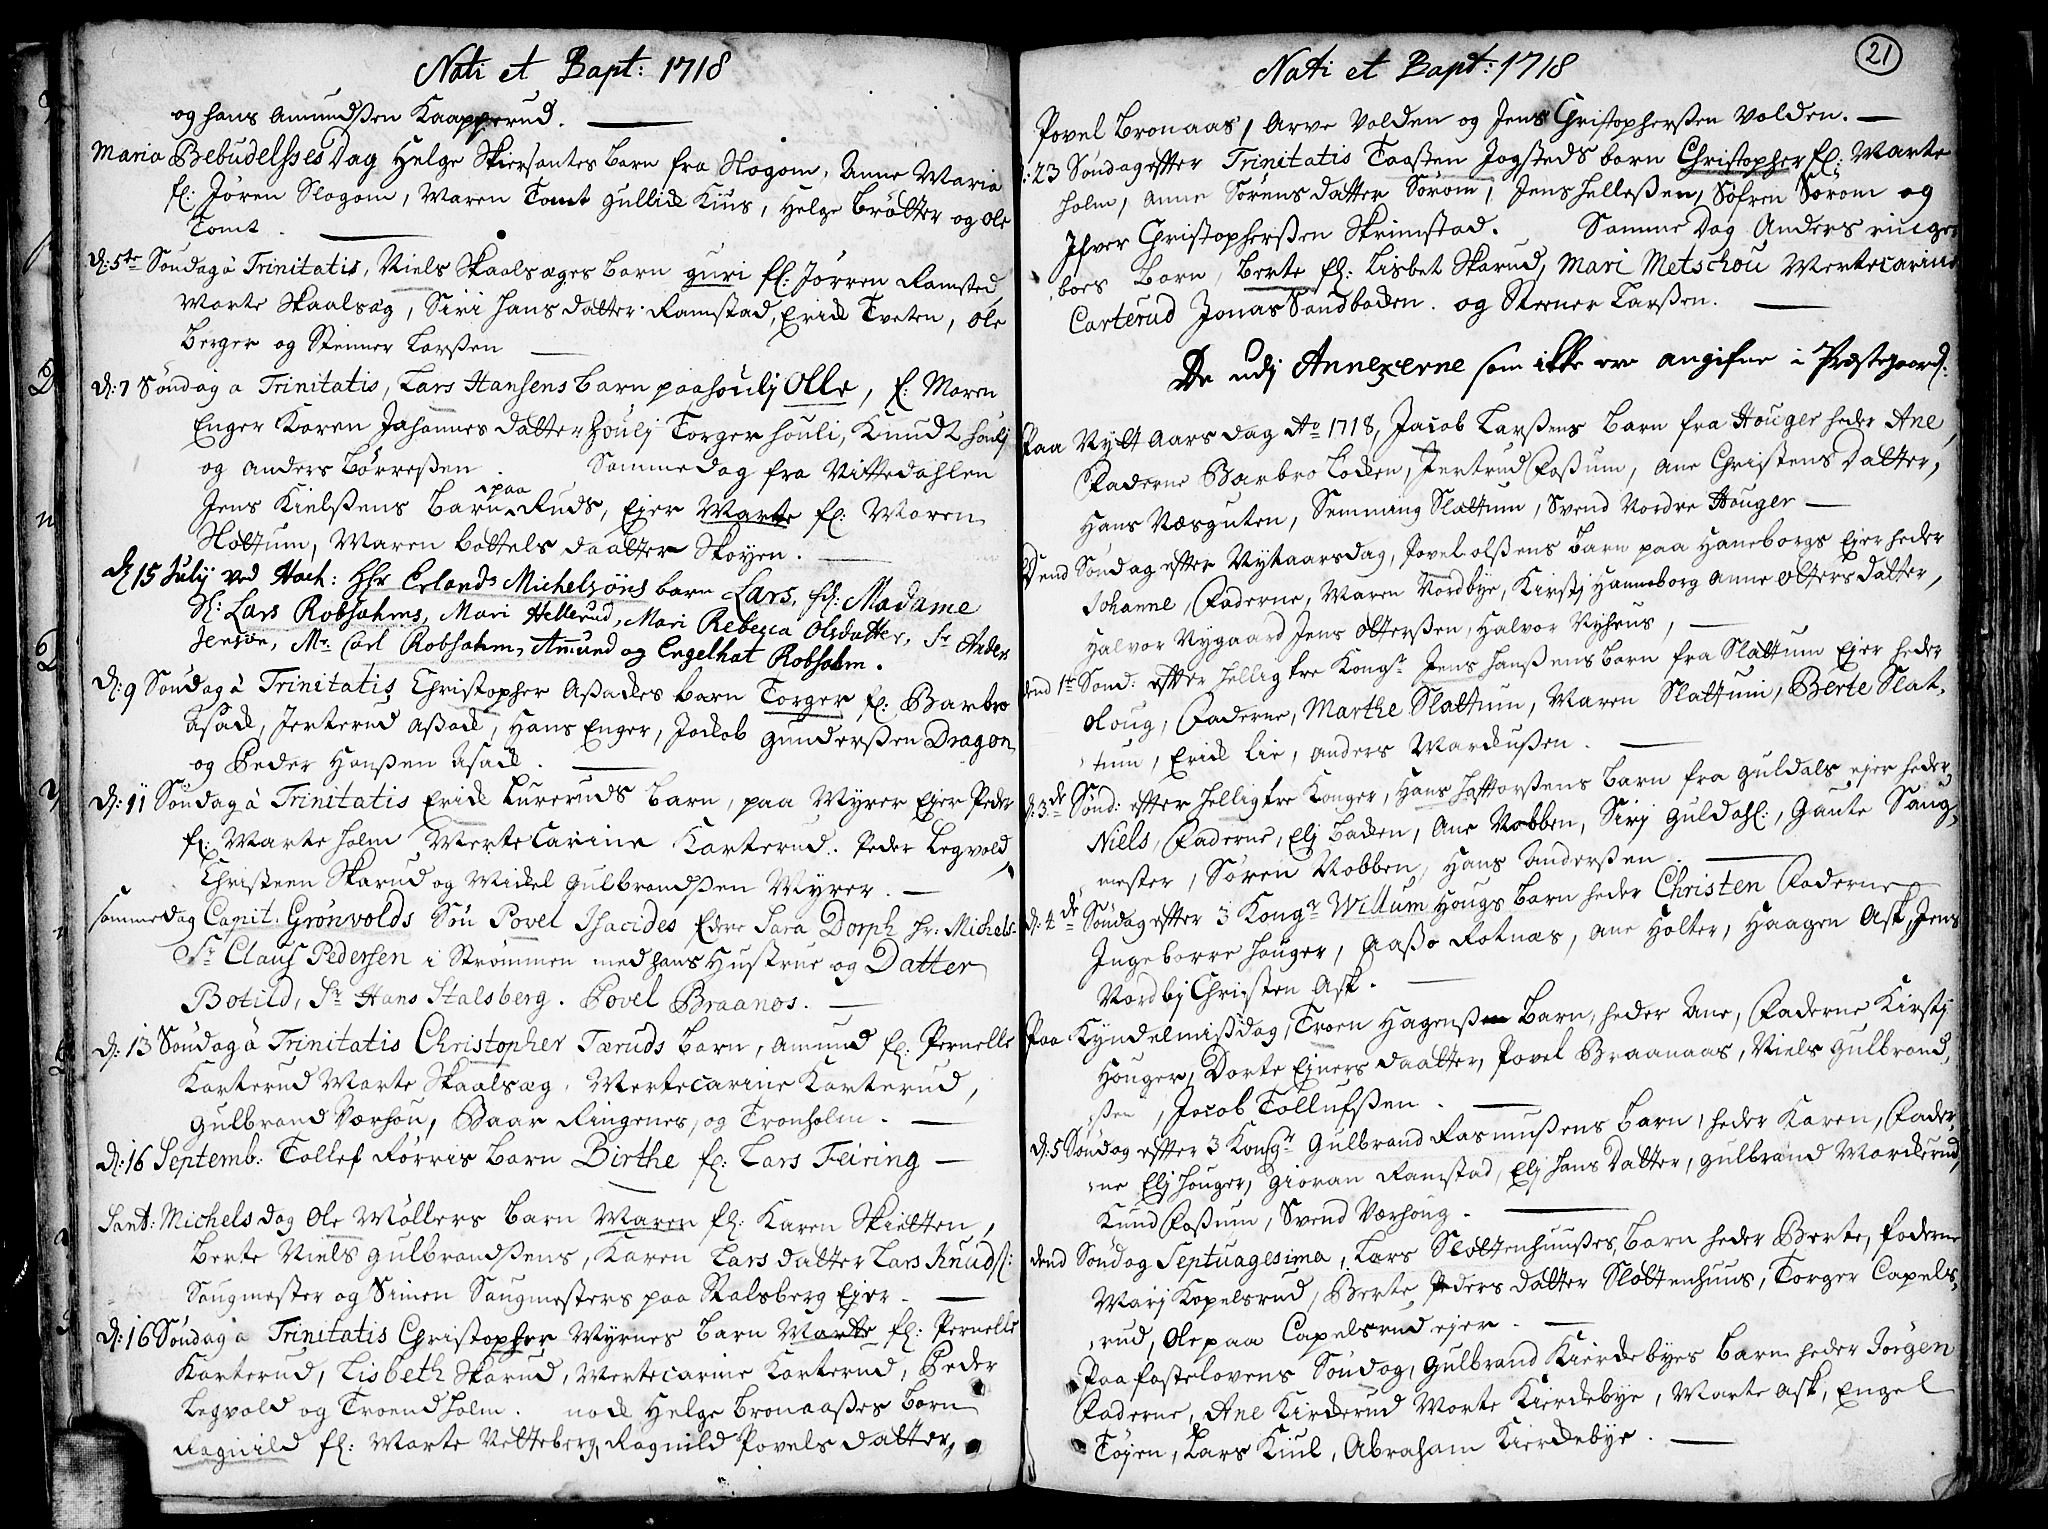 Nati et Bapt: 1718
og Hans Amundsßen Kaapperud.
Maria Bebudelsses Dag Helge Skiersantes barn fra Slogom, Anne Maria
fl: Jören Slogom, Maren Tomt Gullick Kius, Helge Bröltter og Ole
Tomt.
d: 5te Søndag à Trinitatis, Niels Skaalsæges barn guri fl: Jörren Ramsted,
Marte Skaalsæg, Siri Hansdatter Ramstad, Erick Tveten, Ole
Berger og Steiner Larßen
d: 7 Søndag a Trinitatis, Lars Hansens barn paa houlj Olle, f: Maren
Enger Karen Johannesdatter Houlj Torger Houli, Knudt Houlj
og Anders Börreßen. Sammedag fra Nittedahlen
Jens Kielßens Barn paa Ruds, Eier Marte fl: Maren
Slattum, Maren Bottels daatter Skøyen.
d 15 Julij ved Hoch: Hr Erlands Michelsöns barn Lars, fl: Madame
Sl: Lars Robsahms, Mari Hellerud, Mari Rebecca Olsdatter, Sr Anders
Jensøn, Mr. Carl Robsahm, Amund og Engelhat Robsahm.
d: 9 Søndag à Trinitatis Christopher Aßackes barn Torger fl: Barbro
Asack, Jerterud Aßack, Hans Enger, Jackob Gunderßen Dragon
og Peder Hanßen Asack.
d: 11 Søndag à Trinitatis Erick Lureruds barn, paa Myrer Eier Peder
fl: Marte Holm Mertecarine Karterud. Peder Legvold
Christen Skarud og Mickel Gulbrandßen Myrer.
sammedag Capit. Grönvolds Søn Povel Isacides Fdere Sara Dorph hr. Michels:
Sr Claus Pedersen i Strømmen med hans Hustrue og Datter
Botild, Sr Hans Stalsberg. Povel Braanos.
d: 13 Søndag à Trinitatis Christopher Taruds barn, Amund fl: Pernelle
Karterud Marte Skaalsæg, Mertecarine Karterud,
Gulbrand Værhou, Paar Ringenes, og Tronholm.
d: 16 Septemb: Tollef Förris barn Birthe fl: Lars Feiring
Sant: Michels dag Ole Møllers barn Maren fl: Karen Skietten,
Berte Niels Gulbrandßens, Karen Larsdatter Lars Knudß:
Saugmester og Simen Saugmesters paa Stalsberg Eier.
d: 16 Søndag a Trinitatis Christopher Myrnes barn Marte fl: Pernelle
Karterud, Lisbeth Skarud, Mertecarine Karterud, Peder
Legvold og Troendholm. nock Helge Bronaaßes barn
Ragnild fl: Marte Vetteberg, Ragnild Povelsdatter,
Nati et Bapt: 1718
21
Povel Bronaas, Arve Volden og Jens Christopherßen Volden.
d: 23 Søndag efter Trinitatis Taasten Jogsteds barn Christopher fl: Marte
Holm, Anne Sørensdatter Sørom, Jens Helleßen, Söfren Sörom og
Ifver Christopherßen Skrimstad. Samme Dag Anders ringes
boes barn, Berte fl: Lisbet Skarud, Mari Metschou Mertecarine
Carterud Jonas Sandbacken. og Sterner Larßen.
De udj Annexerne som ikke ere angifne i Præstegaard:
Paa Nytt Aars dag Ao 1718, Jacob Larßens Barn fra Houger heder Ane,
Faderne Barbro Løcken, Jertrud Foßum, Ane Christensdatter,
Hans Næsguten, Semming Slattum, Svend Nordre Houger
Dend Søndag efter Nytaarsdag, Povel Olßens barn paa Haneborgs Eier heder
Johanne, Faderne, Maren Nordbye, Kirstj Hanneborg Anne Ottersdatter,
Halvor Nygaard Jens Otterßen, Halvor Nyhuus,
dend 1te Sønd: efter helligtre Kongr Jens Hanßens barn fra Slattum Eier heder
Oloug, Faderne, Marthe Slattum, Maren Slattum, Berte Slat,
tum, Erick Lie, Anders Marckußen.
d: 3de Sønd: efter helligtre Konger, Hans Hafftorßens Barn fra Guldals eier heder
Niels, Faderne, Elj Backen, Ane Nobben, Sirj Guldahl:, Gaute Saug,
mester, Sören Nobben, Hans Anderßen.
d: 4de Søndag efter 3 Kongr Willum Hougs Barn heder Christen Faderne
Ingeborre Houger, Aaße Rotnæs, Ane Holter, Haagen Ask, Jens
Nordbj Christen Ask.
Paa Kyndelmißdag, Troen Hagenß Barn, heder Ane, Faderne Kirstj
Houger, Dorte Ejnersdaatter, Povel Braanaas, Niels Gulbrand,
ßen, Jacob Tollufsen.
d: 5 Søndag efter 3 Kongr Gulbrand Rasmußens Barn, heder Karen, Fader,
ne Elj Houger, Gioran Ramstad, Elj Hansdatter, Gulbrand Marckerud,
Knud Foßum, Svend Værhoug.
dend Søndag Septuagesima, Lars Slottenhuußes, Barn heder Berte, Faderne
Marj Kopelsrud, Berte Pedersdatter Slottenhuus, Torger Capels,
rud, Ole paa Capelsrud eier.
Paa Fastelovens Søndag, Gulbrand Kierdebyes Barn heder Jørgen
Faderne, Ane Kirckerud Marte Kierdebye, Marte Ask, Engel
Töjen, Lars Kiul, Abraham Kierdebye.